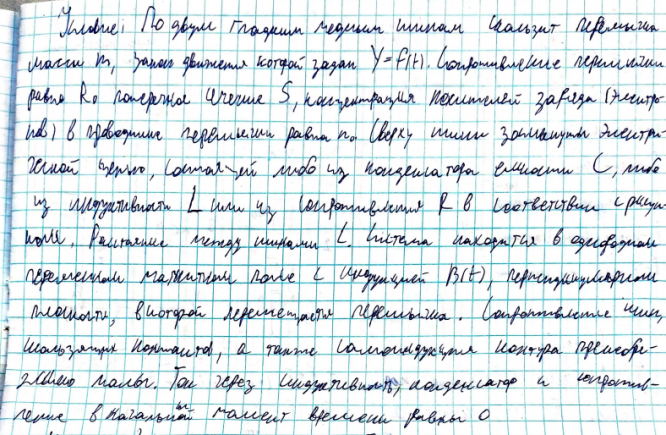 Условие: По двум гладким медным шинам скользит перемычка
массы m, закон движения которой задан Y=f(t). Сопротивление перемычки
равно R₀ поперечное сечение S, концентрация носителей заряда (электро-
нов) в проводнике перемычки равна n₀ Сверху шины замкнуты электри-
ческой цепью, состоящей либо из конденсатора ёмкости C, либо
из индуктивности L или из сопротивления R в соответствии с рисун-
ком. Расстояние между шинами l. Система находится в однородном
переменном магнитном поле с индукцией B(t), перпендикулярном
плоскости, в которой перемещается перемычка. Сопротивление шин,
скользящих контактов, а также самоиндукция контура пренебре-
жимо малы. Ток через индуктивность, конденсатор и сопротив-
ление в начальный момент времени равны 0